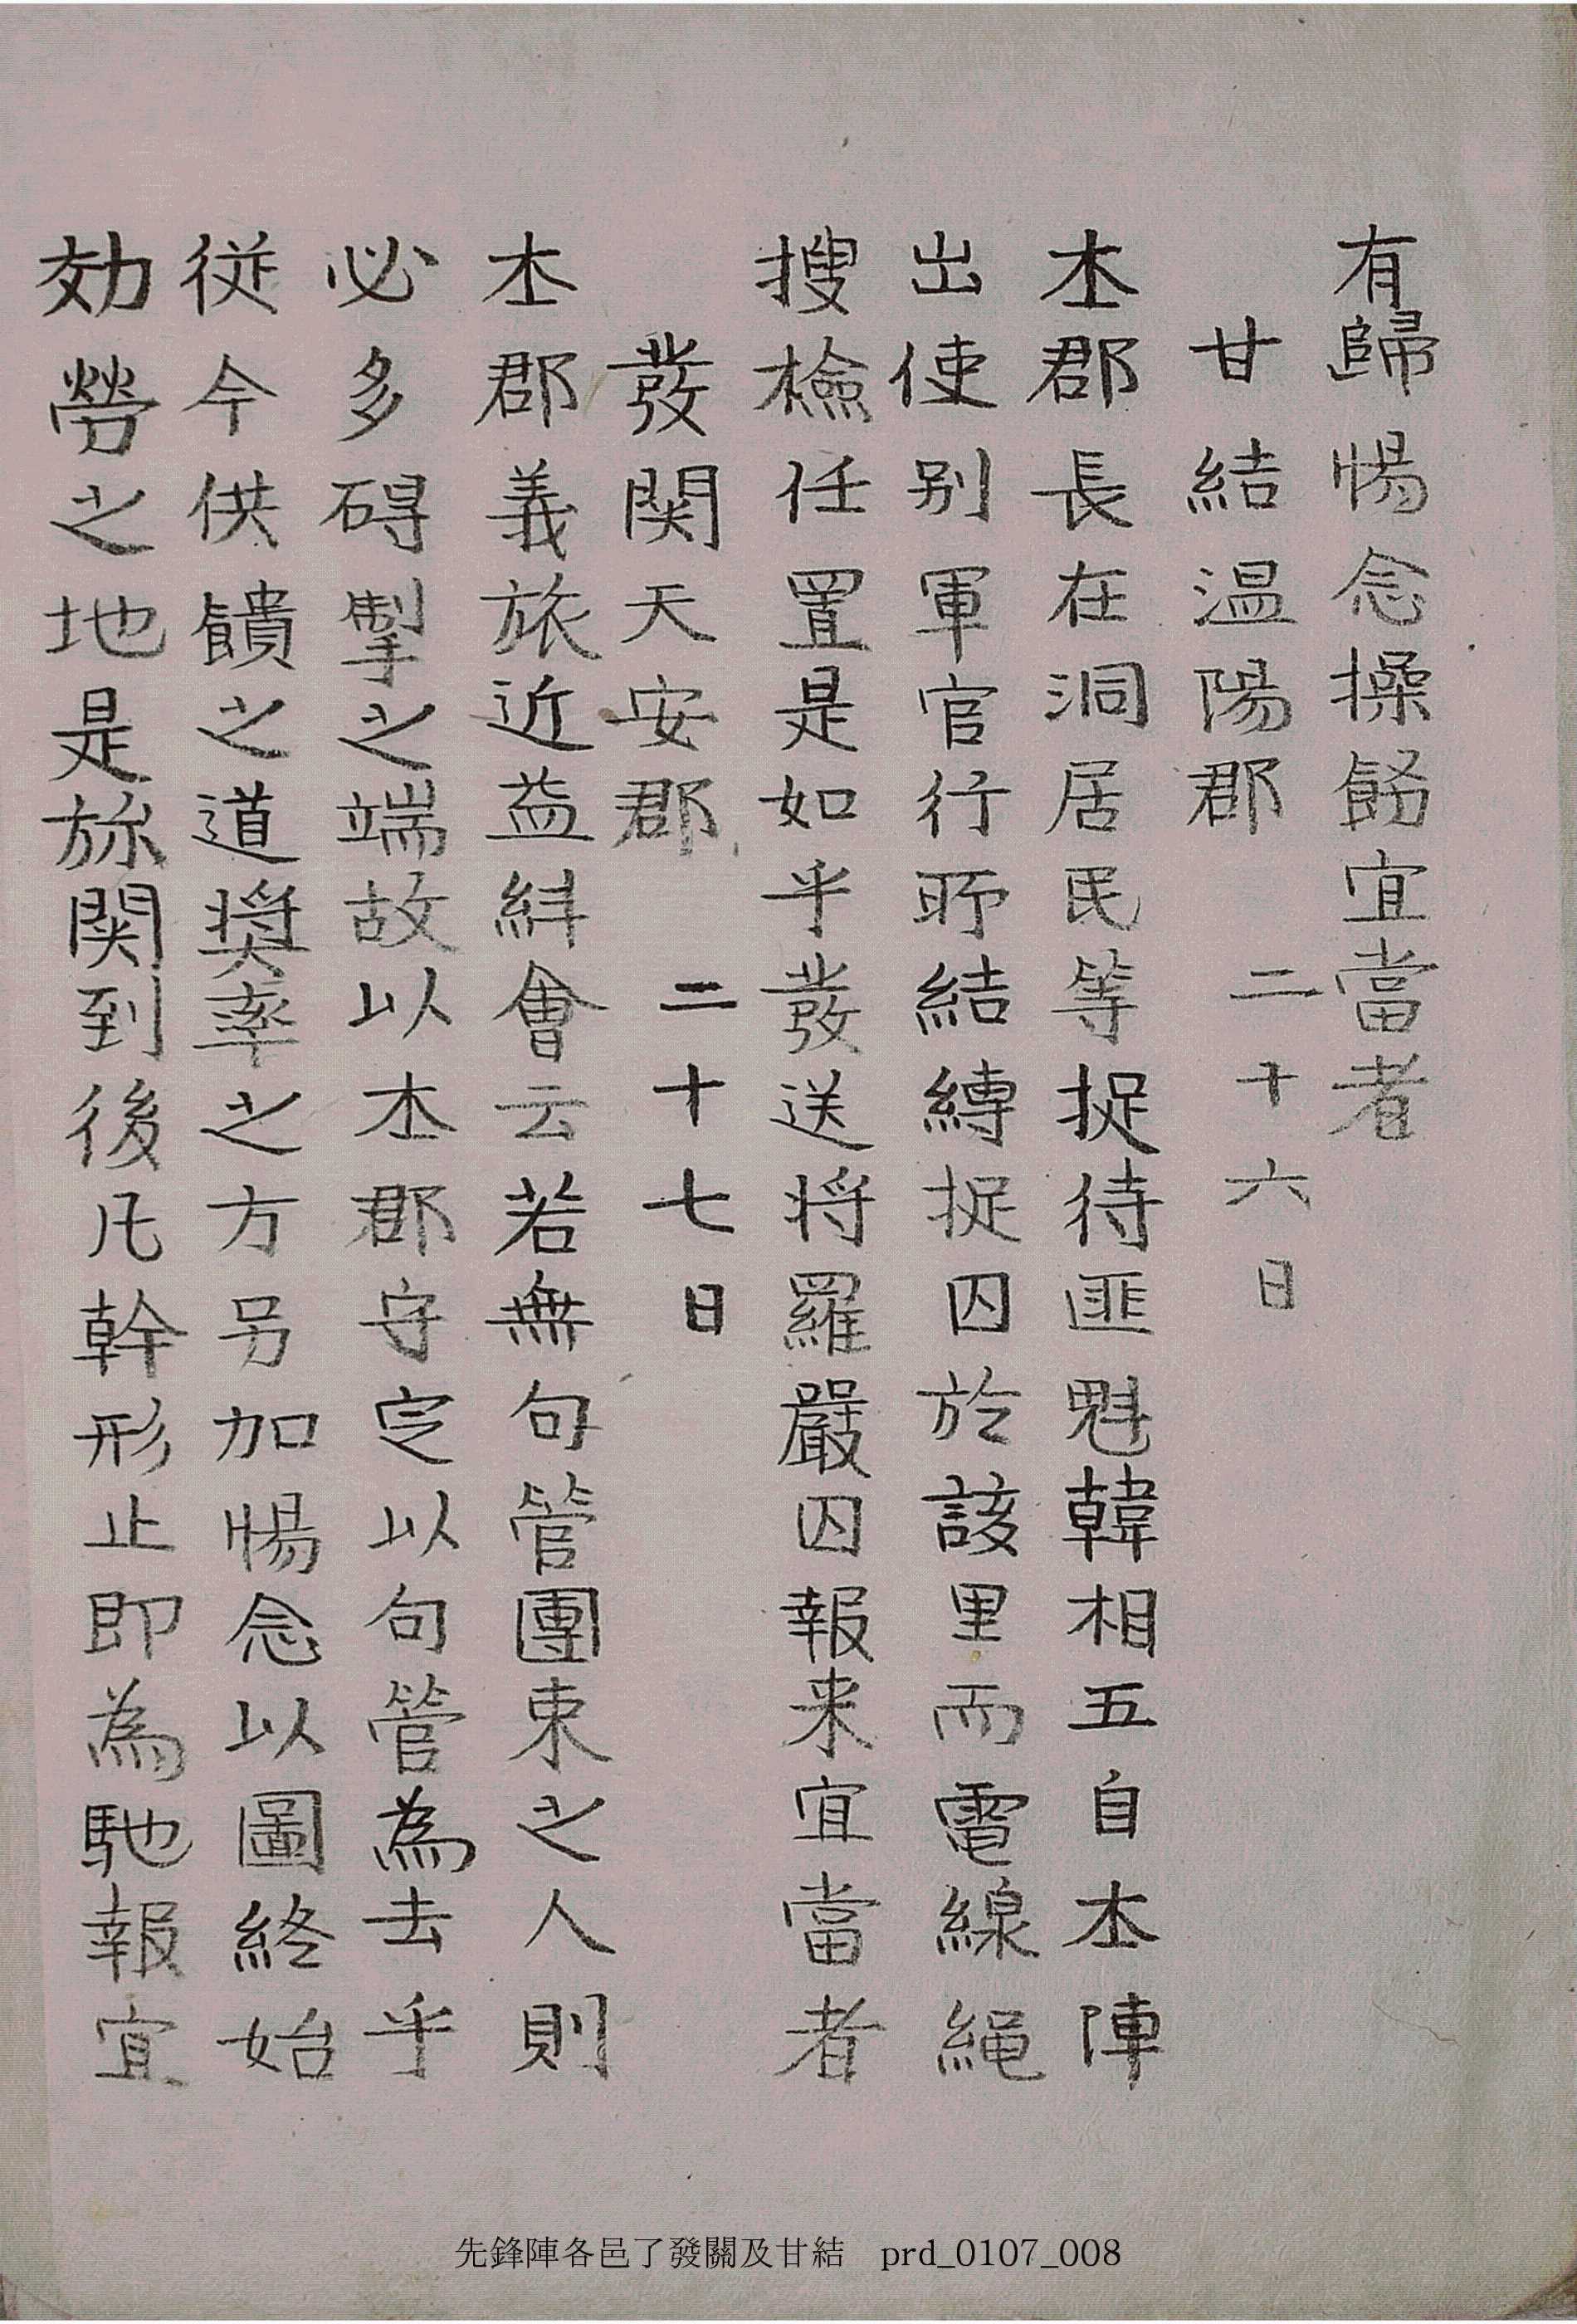 有歸惕念操飭宜當者
甘結温陽郡 二十六日
本郡長在洞居民等捉待匪魁韓相五自本陣
出使別軍官行耶結縳捉囚於該里而電線繩
搜檢任置是如乎發送將羅嚴囚報来宜當者
發関天安郡 二十七日
本郡義旅近益糾會云若無句管團束之人則
必多碍掣之端故以本郡守定以句管為去乎
從今供饋之道奬率之方另加惕念以圖終始
効勞之地是旀関到後凡幹形止即為馳報宜
先鋒陣各邑了發關及甘結 prd_0107_008